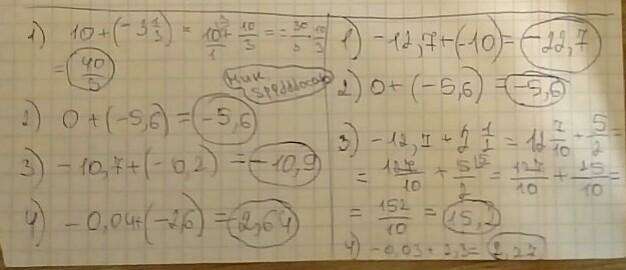 1) 10 + (-3 1/3) = 10/1 - 10/3 = = 30/3 - 10/3
= 40/3
ник
2) 0 + (-5,6) = -5,6
3) -10,7 + (-0,2) = -10,9
4) -0,04 + (-2,6) = -2,64
1) -12,7 + (-10) = -22,7
2) 0 + (-5,6) = -5,6
3) -12,7 + 2 1/2 = 12 7/10 + 5/2 =
= 127/10 + 5/2 = 127/10 + 25/10 =
= 152/10 = 15,2
4) -0,03 + 2,3 = 2,27